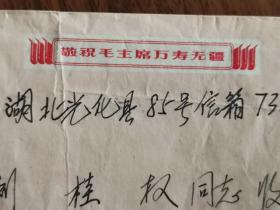 敬祝毛主席万寿无疆
湖北光化县85号信箱73
刘桂权同志收